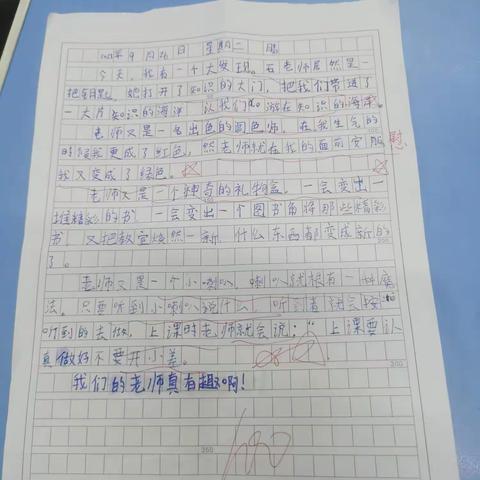 年9月26日 星期二 晴
今天,我有一个大发现。石老师居然是一
把钥匙,她打开了知识的大门,把我们带进了
一大片知识的海洋 让我们 游在知识的海洋。
老师又是一名出色的调色师,在我生气的
时候我更成了红色,然老师就在我的面前安服 慰
我又变成了绿色。
老师又是一个神奇的礼物盒,一会变出一
堆精彩的书 一会变出一个图书角将那些精彩
书 又把教室焕然一新,什么东西都变成新的
了。
老师又是一个小喇叭,喇叭就根有一种魔
法。只要听到小喇叭说什么 听到者就会按
听到的去做,上课时老师就会说:“上课要认
真做好不要开小差。
我们的老师真有趣啊!
200
300
350